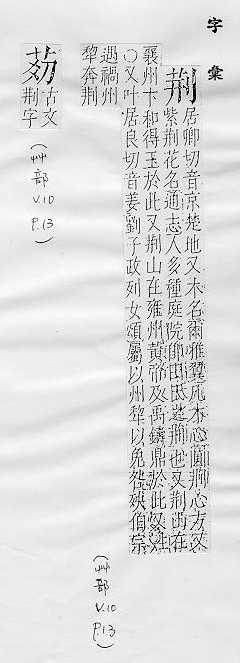 字彙
荆 居卿切音京楚地又木名爾雅翼凡木心圓荆心方又
紫荆花名通志人多種庭院即田氏荆也又荆西在
襄州卞和得玉於此又荆山在雍州黄帝及禹鑄鼎於此又姓
○又叶居良切音姜劉子政列女頌屬以州犂以免咎殃伯宗
遇禍州
犂奔荆
(艸部 V.10 P.13)
古文
荆字
(艸部 V.10 P.13)